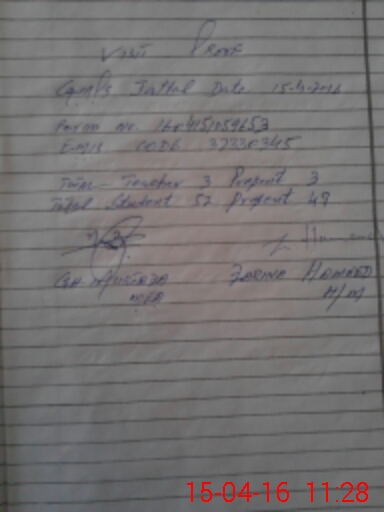 VISIT PROOF
GGMPS Date 15-4-2016
Form no. 1604151059653
EMIS CODE 37330345
Total Teacher 3 Present 3
Total Student 52 Present 49
GH Murtaza ZARINA HAMEED
MEA H/M
15-04-16 11:28